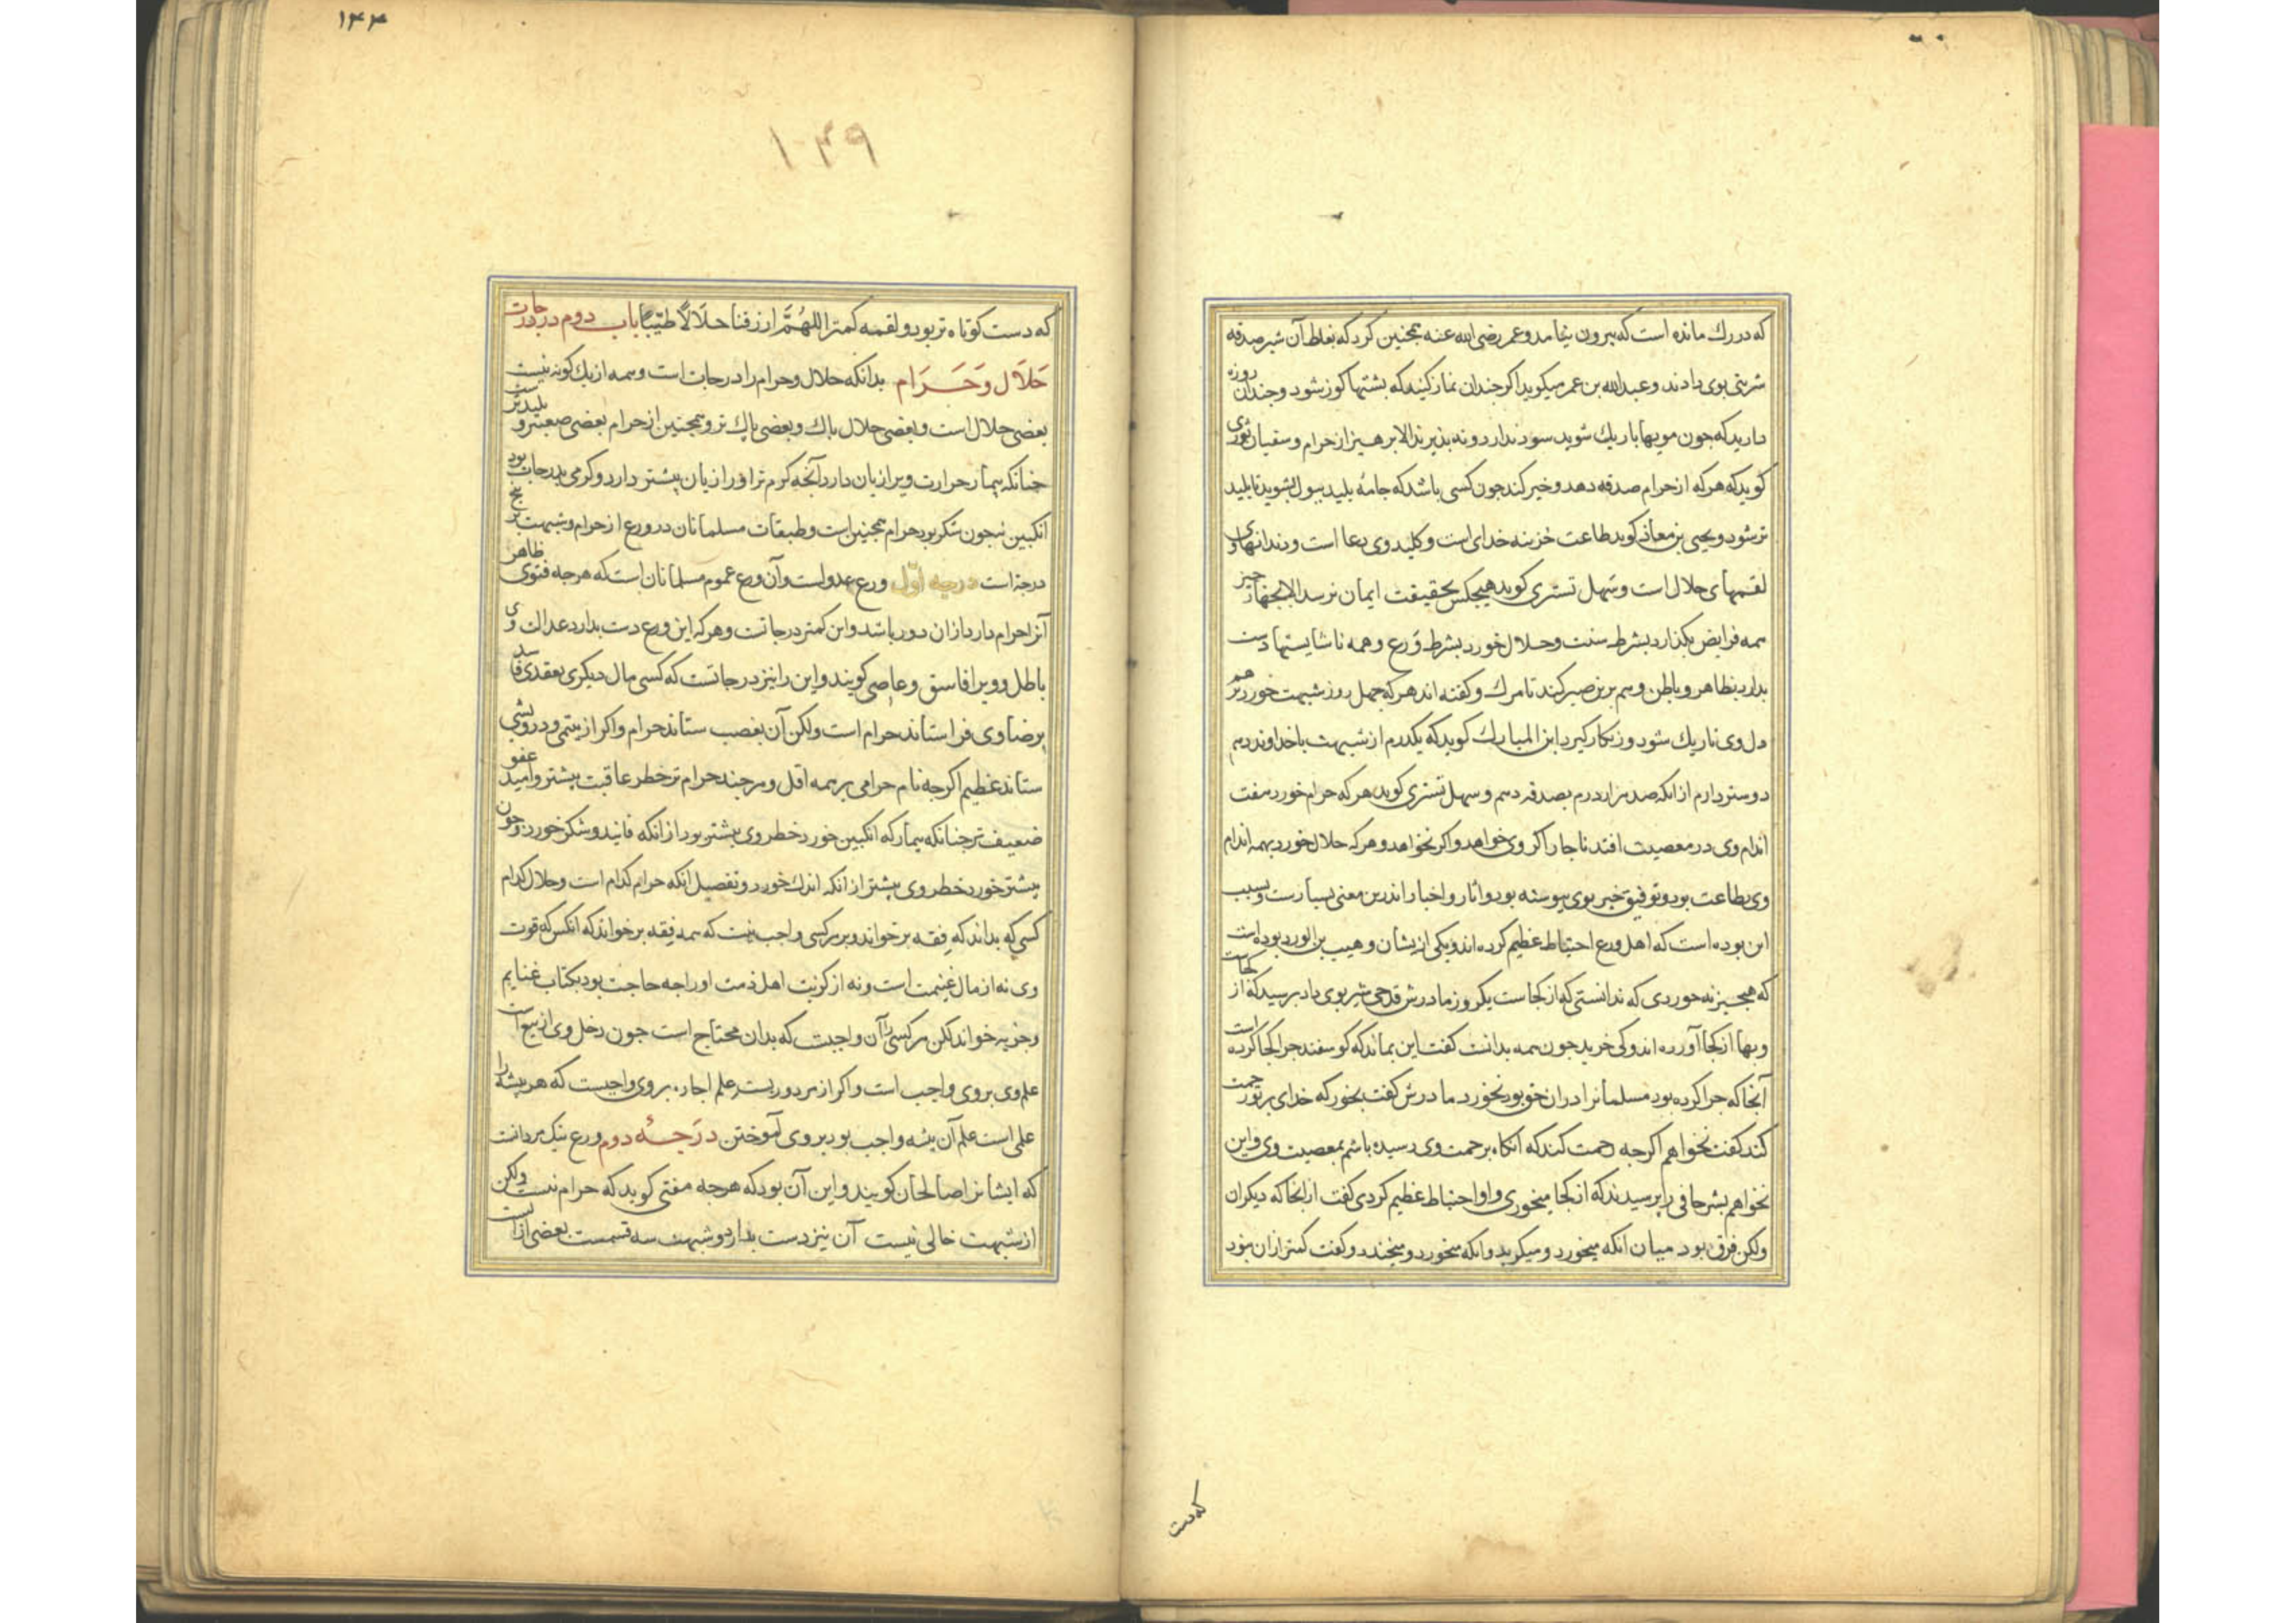 که در رك مانده است که بیرون نیامد و عمر رضی الله عنه همجنین کرد که بغلط آن شیر صدقه
شربتی بوی دادند و عبدالله بن عمر میکوید اکر جندان نماز کنید که بشتها کوز شود و جندان روزه
دارید که جون مویها باریك شوید سود ندارد و نه بذیرند الا برهیز از حرام و سفیان ثوری
کوید که هر که از حرام صدقه دهد و خیر کند جون کسی باشد که جامهٔ بلید ببول بشوید تا بلید
تر شود و یحیی بن معاذ کوید طاعت خزینه خدای است و کلید وی دعا است و دندانهای وی
لقمهای حلال است و سهل تستری کوید هیجکس بحقیقت ایمان نرسد الا بجهار جیز
همه فرایض بکذارد بشرط سنت و حلال خورد بشرط وَرع و همه ناشایستها دست
بدارد بظاهر و باطن و هم برین صبر کند تا مرك و کفته اند هر که جهل روز شبهت خورد
دل وی تاریك شود و زنکار کیرد ابن المبارك کوید که یکدرم از شبهت با خداوند دهم
دوستر دارم از انکه صد هزار درم بصدقه دهم و سهل تستری کوید هر که حرام خورد هفت
اندام وی در معصیت افتد ناجار اکر وی خواهد و اکر نخواهد و هر که حلال خورد همه اندام
وی بطاعت بود و توفیق خیر بوی بیوسته بود و آثار و اخبار اندرین معنی بسیارست و بسبب
این بوده است که اهل ورع احتیاط عظیم کرده اند و یکی ازیشان وهیب بن الورد بوده است
که هیجیز نه خوردی که ندانستی که از کجاست یکروز مادرش قدحی شیر بوی داد برسید که از کجاست
و بها از کجا آورده اند و کی خرید جون همه بدانست کفت این بماند که کوسفند جرا کجا کرده است
آنجا که جرا کرده بود مسلمانرا دران حق بود نخورد مادرش کفت بخور که خدای بر تو رحمت
کند کفت نخواهم اکرجه رحمت کند که آنکاه برحمت وی رسیده باشم بمعصیت وی و این
نخواهم بشر حافی را برسیدند که از کجا میخوری و او احتیاط عظیم کردی کفت از انجا که دیکران
ولکن فرق بود میان انکه میخورد و میکرید و انکه میخورد و میخندد و کفت کمتر ازان نبود
که دست
۱۴۴
۱۴۹
که دست کوتاه تر بود و لقمه کمتر اللهُمَّ ارزقنا حلَالاً طیّبًا باب دوم در درجات
حَلاَل وَ حَرَام بدانکه حلال و حرام را درجات است و همه از یك کونه نیست
بعضی حلال است و بعضی حلال باك و بعضی باك تر و همجنین از حرام بعضی صعبتر و بلیدتر است
جنانکه بیمار حرارت ویرا زیان دارد آنجه کرم تر او را زیان بیشتر دارد و کرمی بدرجات بود
انکبین نه جون شکر بود حرام همجنین است و طبقات مسلمانان در ورع از حرام و شبهت بر بنج
درجه است درجه اوّل ورع عدولست و آن ورع عموم مسلمانان است که هرجه فتوی ظاهر
آنرا حرام دارد ازان دور باشد و این کمتر درجاتست و هر که این ورع دست بدارد عدالت وی
باطل و ویرا فاسق و عاصی کویند و این را نیز درجاتست که کسی مال دیکری بعقدی فاسد
برضاء وی فراستاند حرام است ولکن آن بغصب ستاند حرام و اکر از یتیمی و درویشی
ستاند عظیم اکرجه نام حرامی بر همه اقل و هرجند حرام تر خطر عاقبت بیشتر و امید عفو
ضعیف تر جنانکه بیمار که انکبین خورد خطر وی بیشتر بود از انکه فانید و شکر خورد و جون
بیشتر خورد خطر وی بیشتر از انکه اندك خورد و تفصیل انکه حرام کدام است و حلال کدام
کسی که بداند که فقه برخواند و بر هر کسی واجب نیست که همه فقه برخواند که انکس که قوت
وی نه از مال غنیمت است و نه از کزیت اهل ذمت او را جه حاجت بود بکتاب غنایم
و جزیه خواند لکن هر کسی را آن واجبست که بدان محتاج است جون دخل وی از بیع است
علم وی بر وی واجب است و اکر از مردوریست علم اجاره بر وی واجبست که هر بیشه را
علمی است علم آن بیشه واجب بود بر وی آموختن درَجهٔ دوم ورع نیك مردانست
که ایشانرا صالحان کویند و این آن بود که هرجه مفتی کوید که حرام نیست ولکن
از شبهت خالی نیست آن نیز دست بدارد و شبهت سه قسمست بعضی از آنست